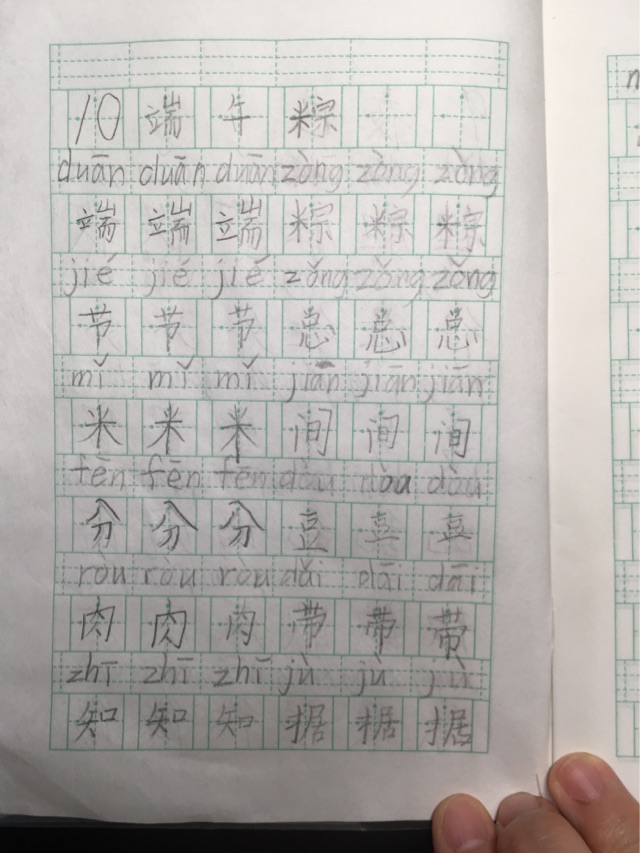 10 端 午 粽
duān duān duān zòng zòng zòng
端 端 端 粽 粽 粽
jié jié jié zǒng zǒng zǒng
节 节 节 总 总 总
mǐ mǐ mǐ jiān jiān jiān
米 米 米 间 间 间
fēn fēn fēn dòu dòu dòu
分 分 分 豆 豆 豆
ròu ròu ròu dāi dāi dāi
肉 肉 肉 带 带 带
zhī zhī zhī jù jù jù
知 知 知 据 据 据